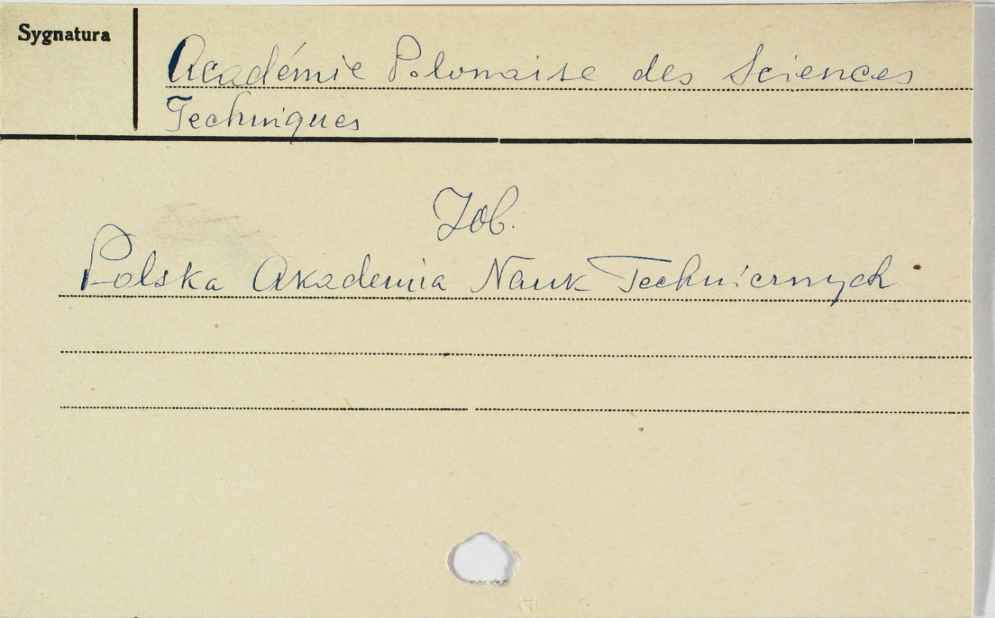 Sygnatura
Académie Polonaise des Sciences
Techniques
Zob.
Polska Akademia Nauk Technicznych